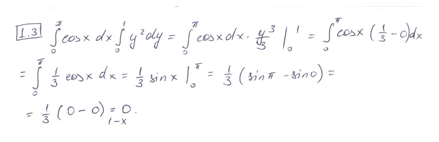 1.3 ∫₀^π cos x dx ∫₀^1 y² dy = ∫₀^π cos x dx · y³/3 |₀^1 = ∫₀^π cos x (1/3 - 0) dx
= ∫₀^π 1/3 cos x dx = 1/3 sin x |₀^π = 1/3 (sin π - sin 0) =
= 1/3 (0 - 0) = 0.
1-x